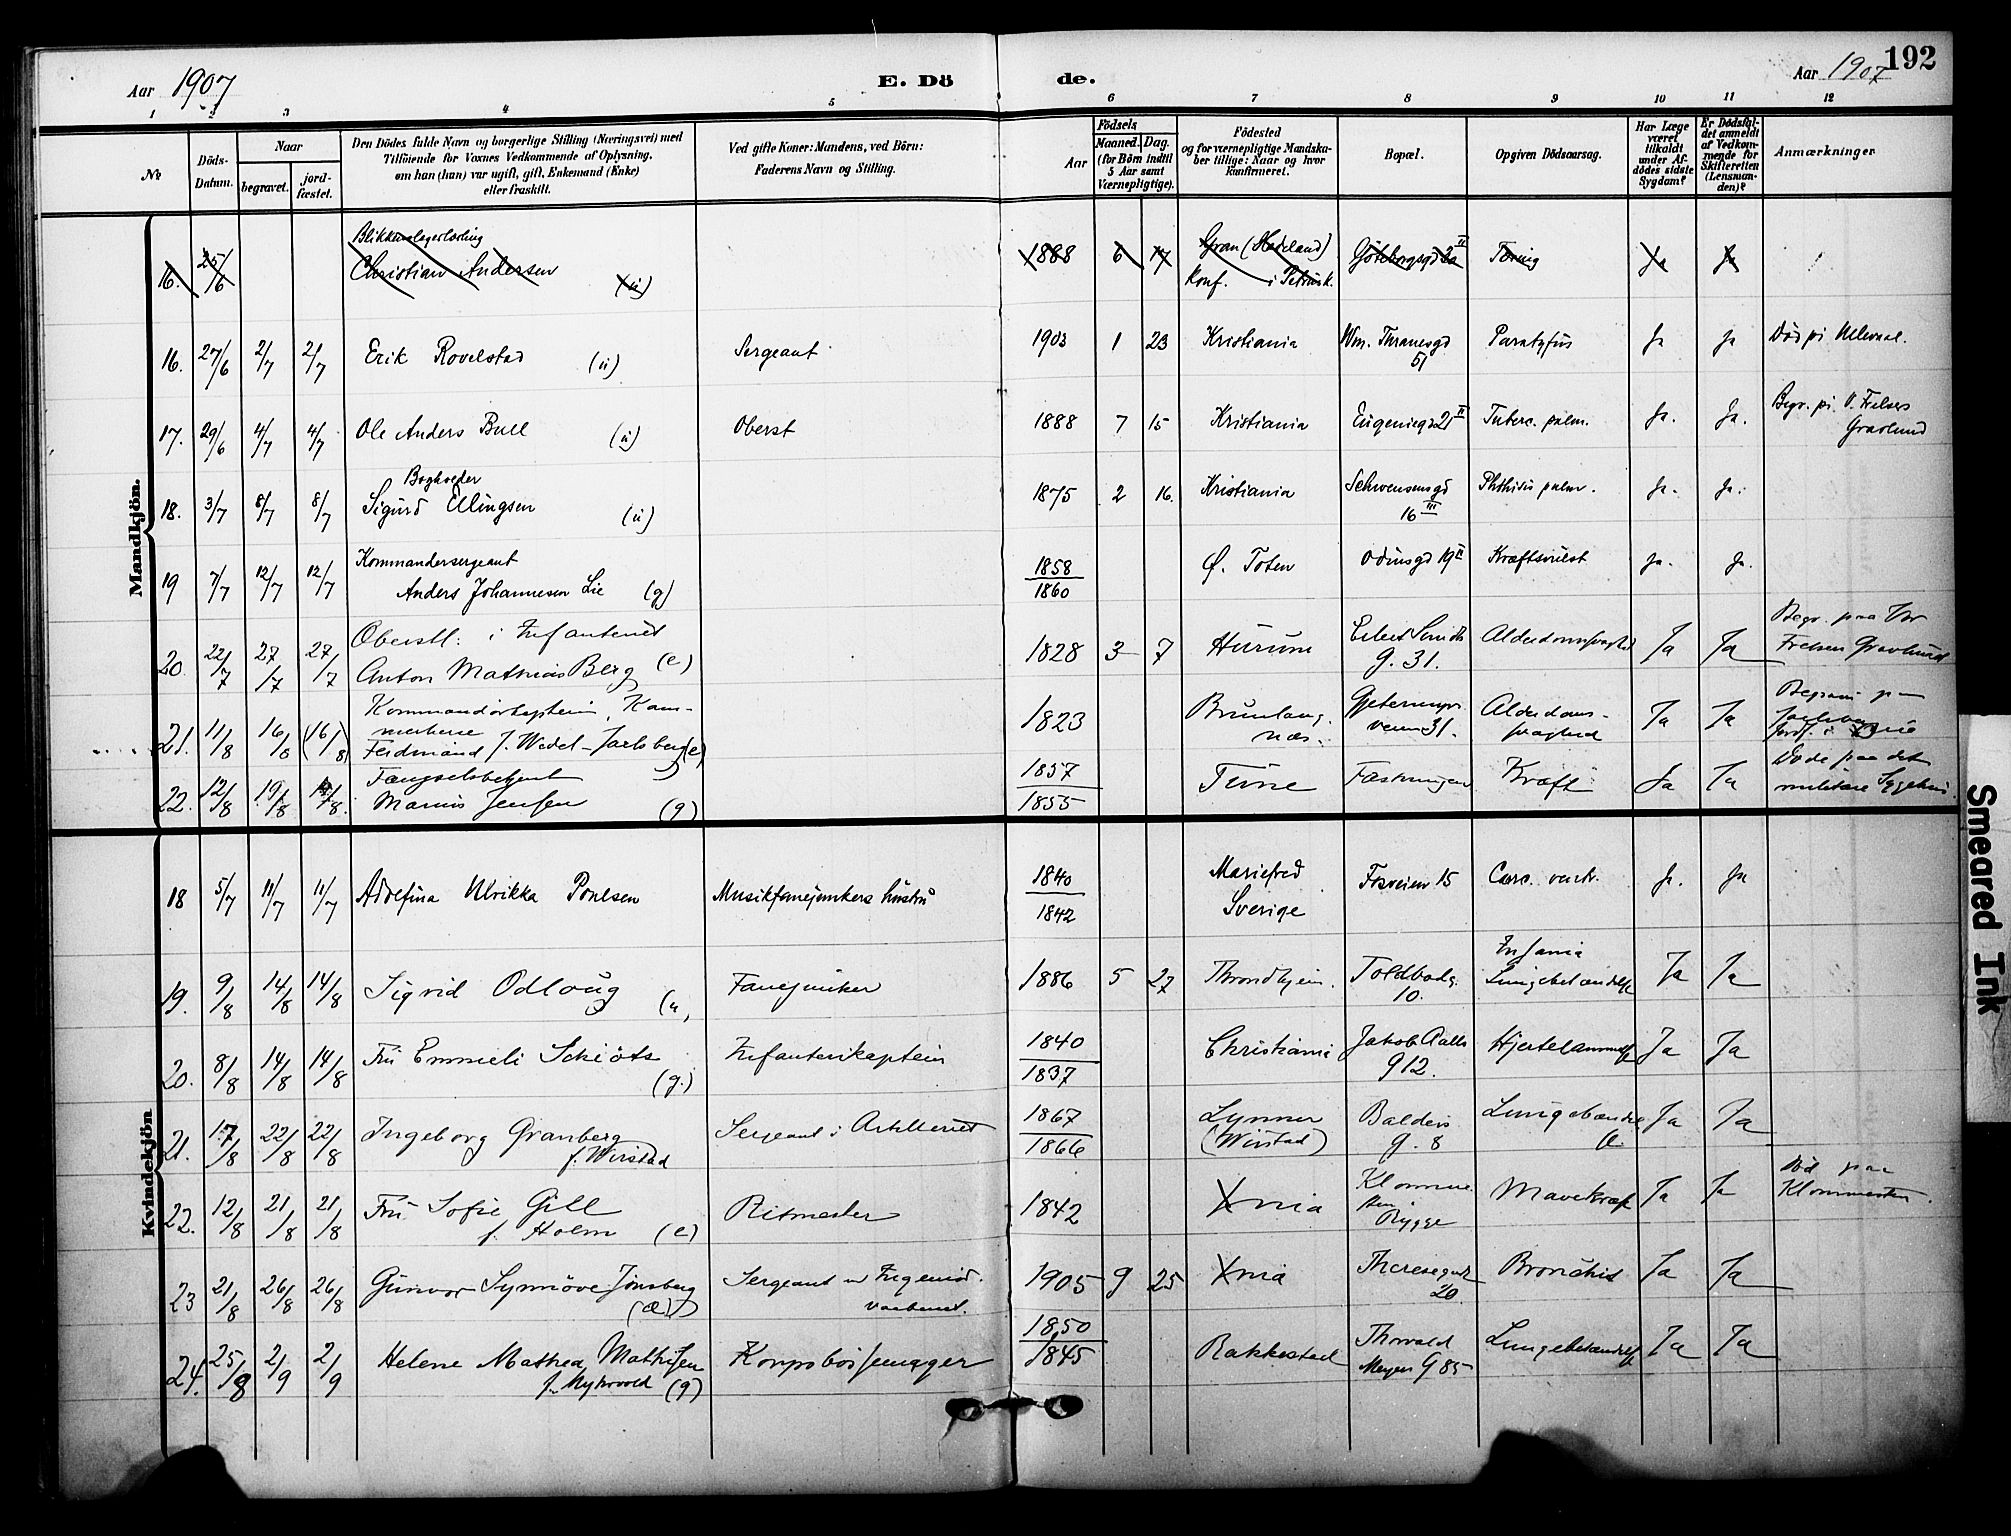 Aar 1907
E. Dö
de.
Aar 1907
192
1 2 3 4 5 6 7 8 9 10 11 12
No
Döds-
Datum.
Naar
begravet.
jord-
fæstet.
Den Dödes fulde Navn og borgerlige Stilling (Næringsvei) med
Tilföiende for Voxnes Vedkommende af Oplysning,
om han (hun) var ugift, gift, Enkemand (Enke)
eller fraskilt.
Ved gifte Koner: Mandens, ved Börn:
Faderens Navn og Stilling.
Födsels
Aar
Maaned. Dag.
(for Börn indtil
5 Aar samt
Værnepligtige).
Födested
og for værnepligtige Mandska-
ber tillige: Naar og hvor
konfirmeret.
Bopæl.
Opgiven Dödsaarsag.
Har Læge
været
tilkaldt
under Af-
dödes sidste
Sygdom?
Er Dödsfal-
det anmeldt
af Vedkom-
mende for
Skifteretten
(Lensman-
den)?
Anmærkninger
Mandkjön.
Blikkenslagerlærling
16. 25/6 Christian Andersen (u) 1888 6 17 Gran (Hadeland) Göteborggd 2a II Tæring Ja Ja
Konf. i Petrusk.
16. 27/6 2/7 2/7 Erik Rovelstad (u) Sergeant 1903 1 23 Kristiania Wm. Thranesgd Paratyfus Ja Ja Död på Ulleval.
51
17. 29/6 4/7 4/7 Ole Anders Bull (u) Oberst 1888 7 15 Kristiania Eugeniegd 21 II Tuberc. pulm. Ja. Ja. Begr. på V. Frelsers
Gravlund
Bogholder
18. 3/7 8/7 8/7 Sigurd Ellingsen (u) 1875 2 16. Kristiania Schwensensgd Phthisis pulm. Ja. Ja.
16 III
Kommandersergeant
19 7/7 12/7 12/7 Anders Johannesen Lie (g) 1858/1860 Ø. Toten Odinsgd 19 II Kræftsvulst Ja. Ja.
Oberstl: i Infanteriet
20. 22/7 27/7 27/7 Anton Mathias Berg (e) 1828 3 7 Hurum Eilert Sundts Alderdomssvaghed Ja Ja Begr. paa Vor
g. 31. Frelsers Gravlund
Kommandörkaptein, Kam-
merherre
21. 11/8 16/8 (16/8) Ferdinand f. Wedel-Jarlsberg (e) 1823 Brunlang- Gjetemyrs- Alderdoms- Ja Ja
næs. veien 31. svaghed
Fængselsbetjent
22. 12/8 19/8 19/8 Marius Jensen (g) 1857/1855 Tune Fæstningen Kræft Ja Ja Döde paa det
militære Sygehus
Kvindekjön
18 5/7 11/7 11/7 Adolfina Ulrikka Poulsen Musikfanejunkers hustru 1840/1842 Mariefred Fosveien 15 Carc. ventr. Ja. Ja
Sverige
19. 9/8 14/8 14/8 Sigrid Odloug (u) Fanejunker 1886 5 27 Throndhjem. Toldbodg. Ja Ja
10. Lungebetændelse
20. 8/8 14/8 14/8 Fru Emmeli Schiötz (g.) Infanterikaptein 1840/1837 Christiania Jakob Aalls Hjertelammelse Ja Ja
g 12.
21. 17/8 22/8 22/8 Ingeborg Granberg Sergeant i Artilleriet 1867/1866 Lynner Balders Ja Ja
f. Wirstad (Wirstad) g. 8
22. 12/8 21/8 21/8 Fru Sofie Gill Ritmester 1842 Xnia Mavekræft Ja Ja Död paa
f. Holm (e) Rygge Klommesten.
23 21/8 26/8 26/8 Gunvor Synnöve Jönsberg Sergeant v Ingeniör- 1905 9 25 Xnia Theresegade Bronchit Ja Ja
vaabenet. 20
24. 25/8 2/9 2/9 Helene Mathea Mathisen Korpsbössemager 1850/1845 Rakkestad Thorvald Lungebetændelse Ja Ja
f. Myhrvold (g) Meyers G 85
Smeared Ink